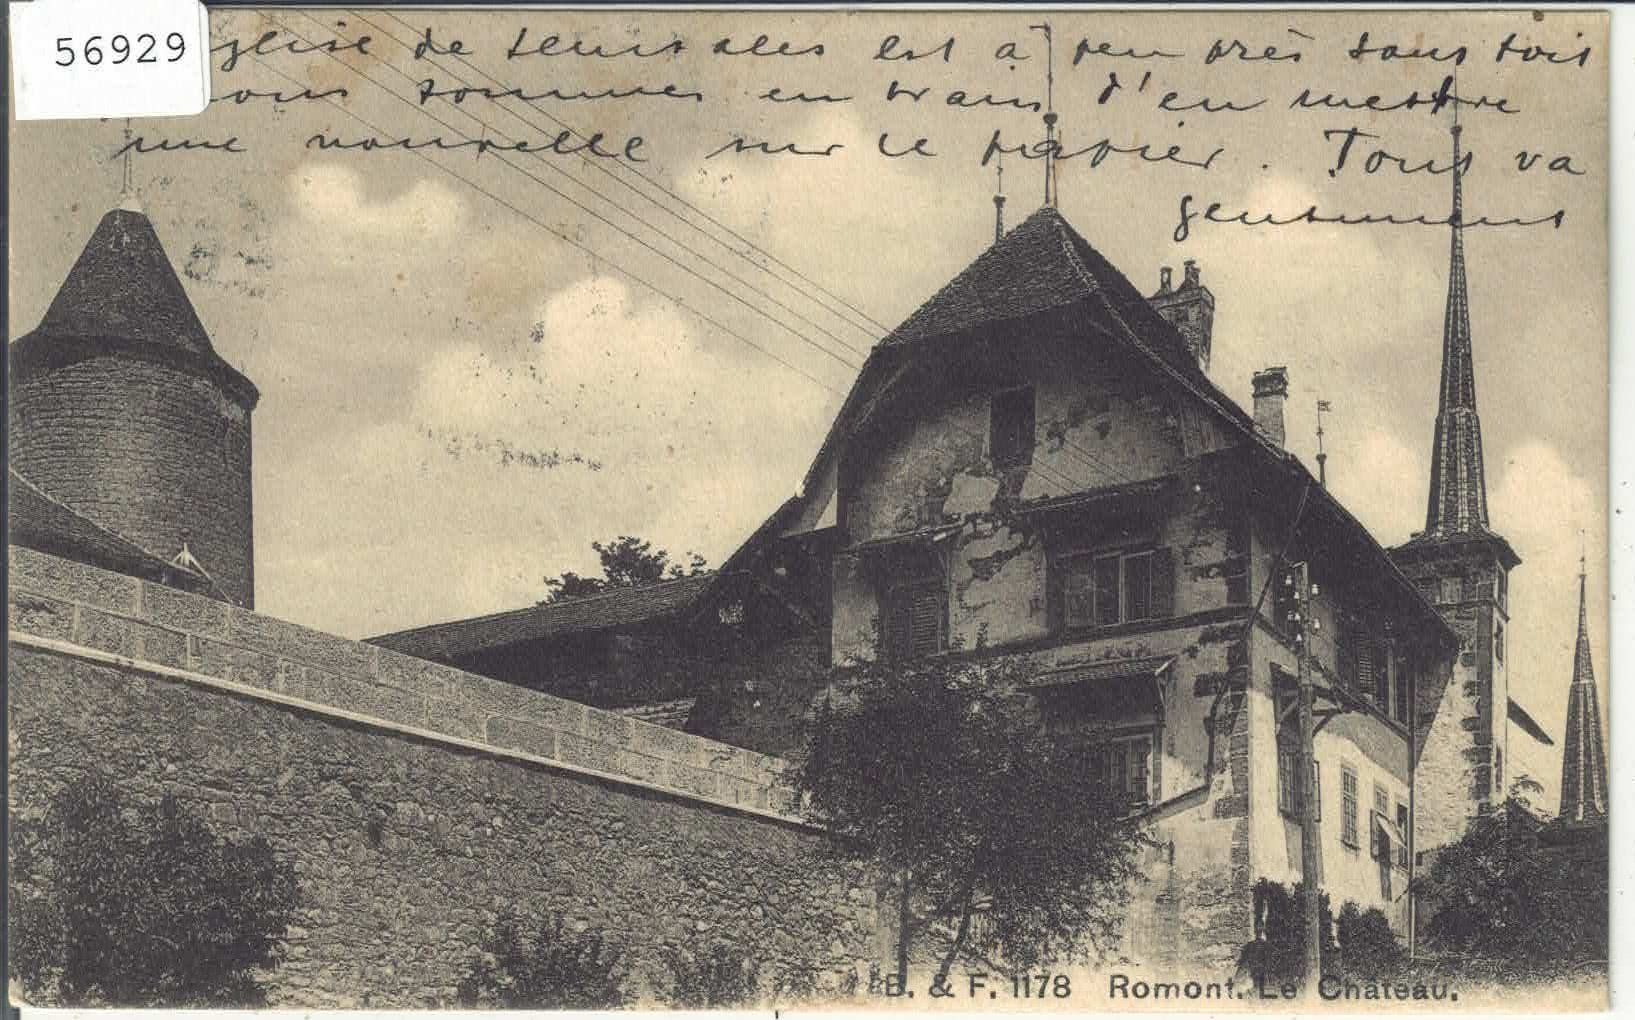 56929
glise de Semsales est à peu près sous toit
nous sommes en train d'en mettre
une nouvelle sur le papier. Tout va
gentiment
B. & F. 1178 Romont. Le Château.